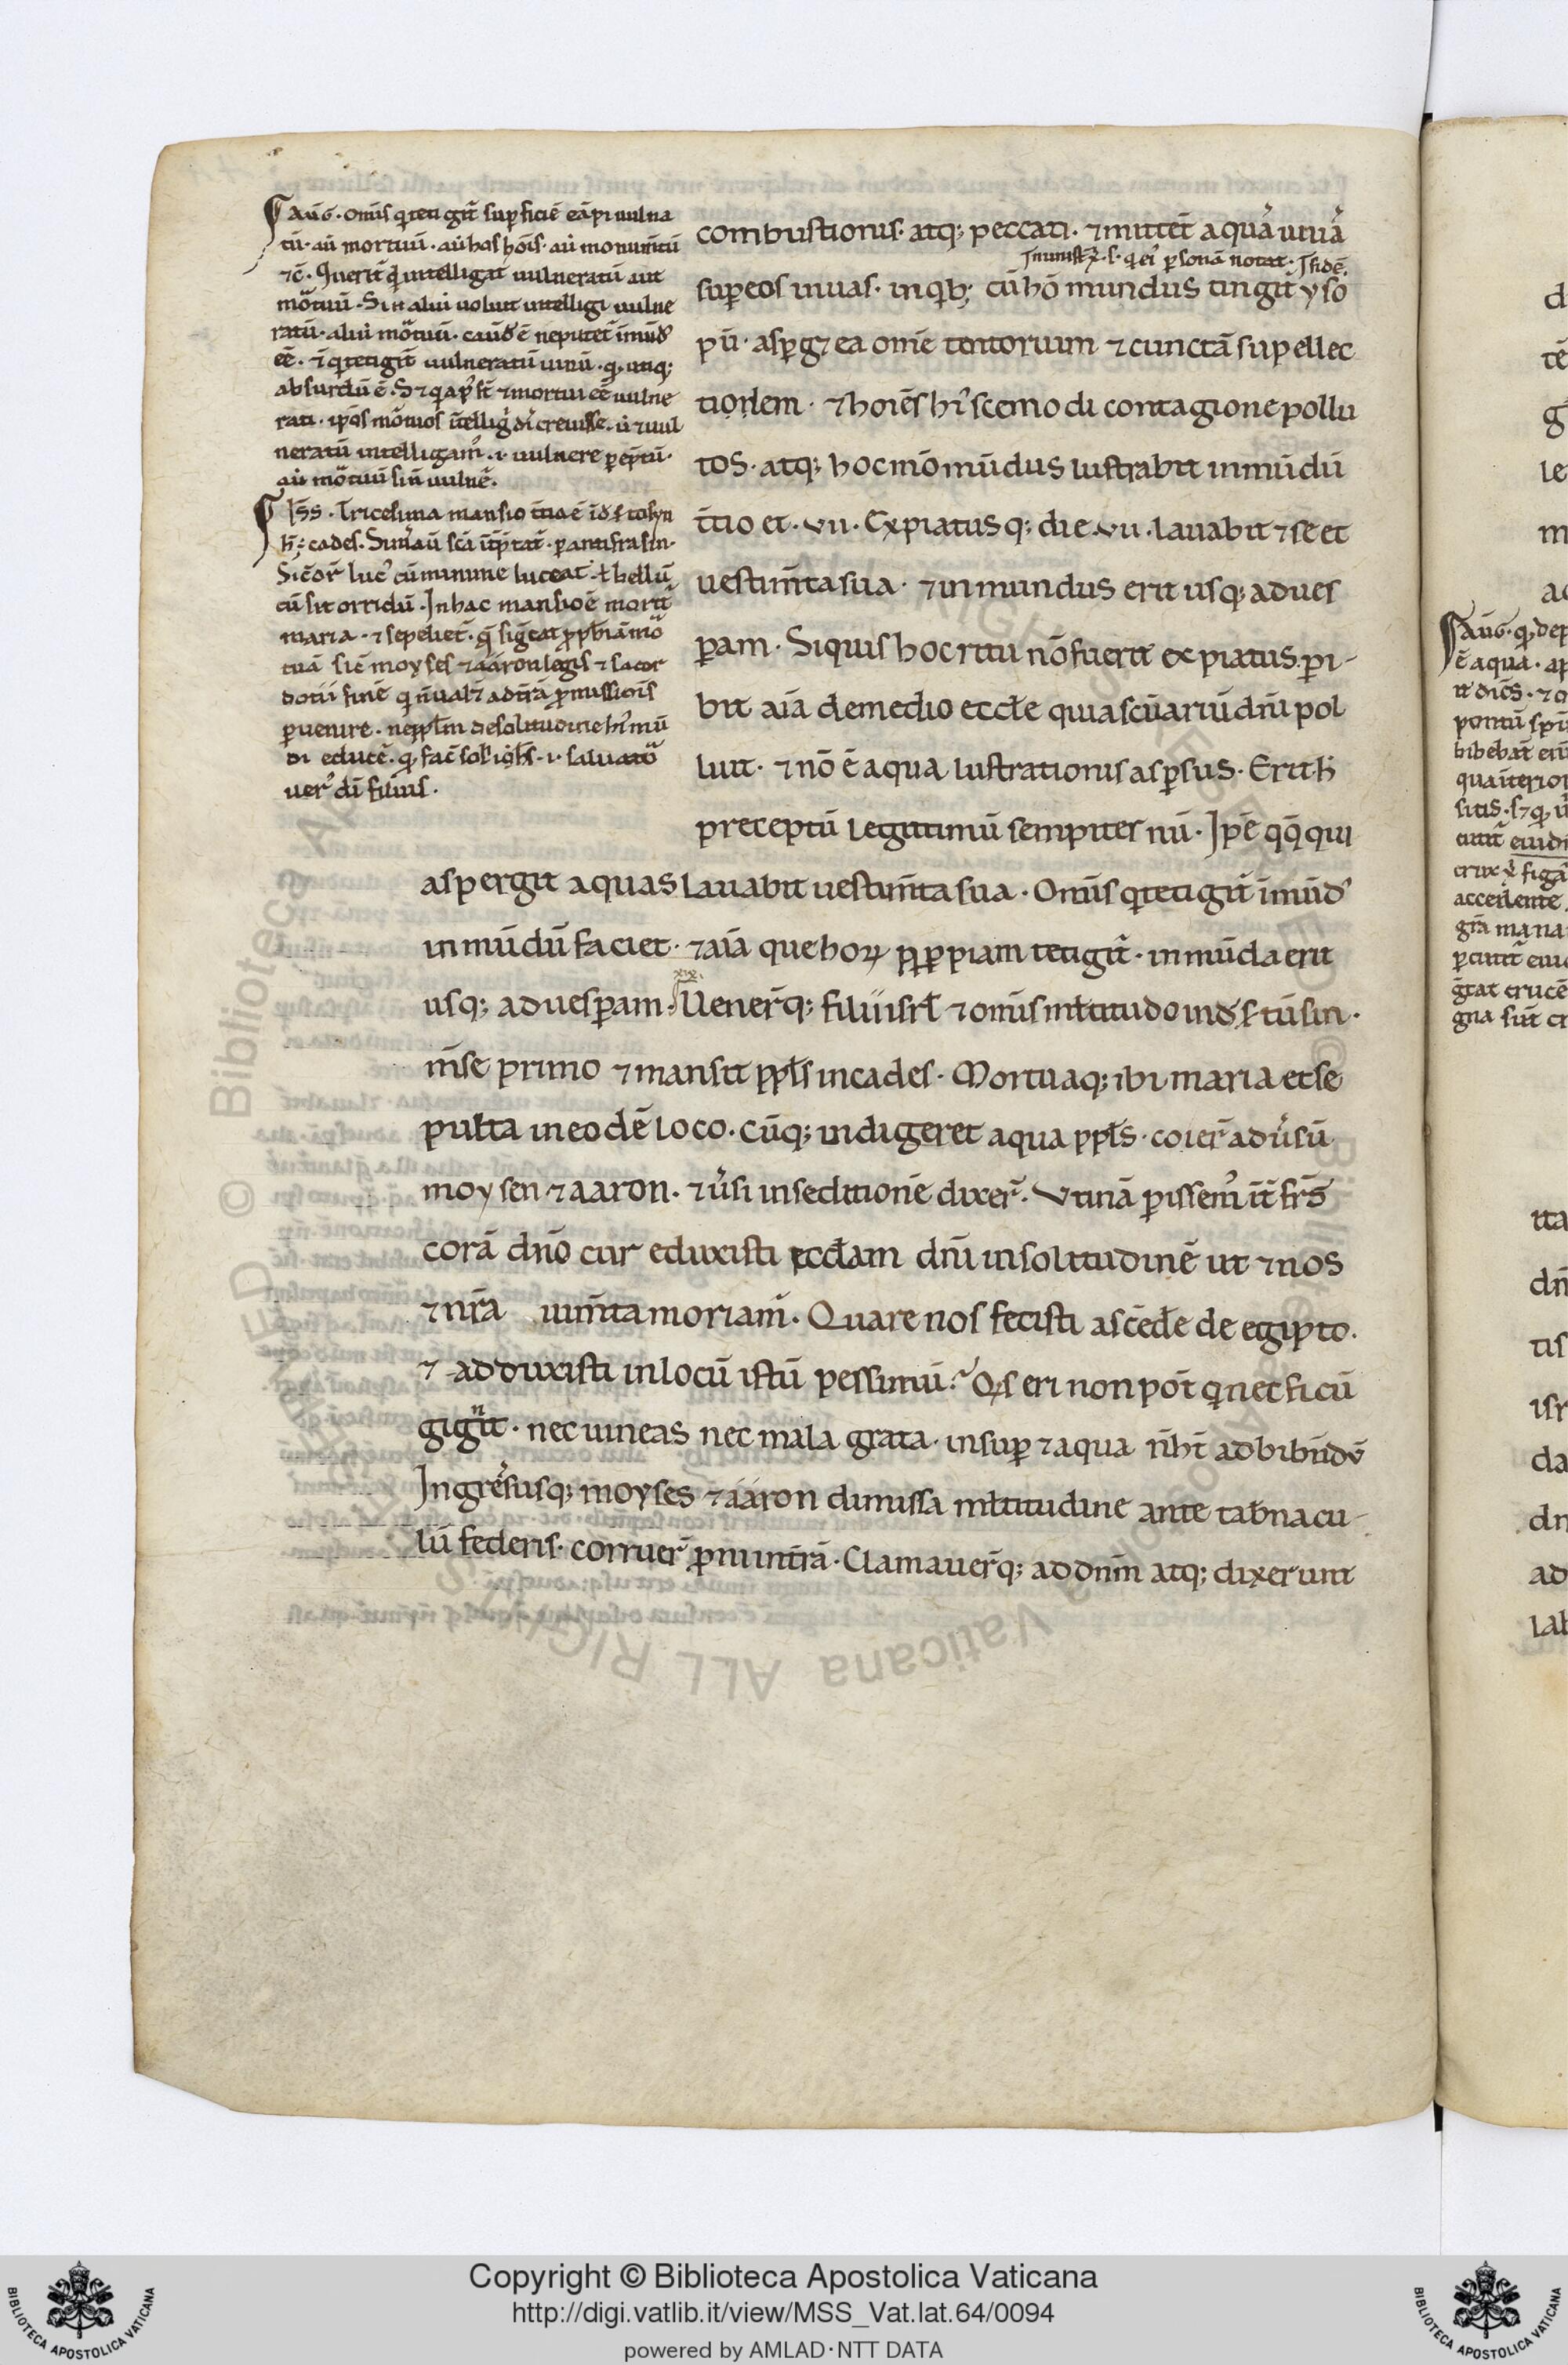 Aug̅. om̅is q̇ tetigͥt sup̱ficiē cāpi uulna
tū. aū mortuū. aū has hoı̅s. aū monum̅tū
⁊c̄. Querit̃ q̇ intelligat uulneratū aut
mortuū. Si n̄ alui uoluit intelligi uulne
ratū. alui mortuū. cauēd̕ ē ne putet̃ īmūd̕
eē. ⁊ q̇ tetigͥt uulneratū uiuū. q̇ utiq;
absurdū ē. S; ⁊ q̇a
neratū intelligam᷒ .i. uulnere pēptū.
aū mortuū sin̄ uulnē.
Iss̄. Tricesima mansio t̃tia ē
Sic̄ dr̄ luc᷒ cū minime luceat. ł bellū
cū sit orridū. In hac mansiōe morit̃
maria. ⁊ sepeliet̃. q̄ sig̅cat pp̱hīam mo
tuā sic̄ moyses ⁊ aaron legis ⁊ sacer
dotii finē q̇ n̄ ualēt ad t̃rā p̱missiōis
p̱uenire. nec ppl̅m de solitudine hͥ mū
di educē. q̇ fac̄ sol᷒ ih̅s .i. saluator
uer᷒ dı̅ filius.
combustionis. atq; peccati. ⁊ mittet̄ aquā uiuā
In ministr̃. s. q̇ ei᷒ p̱sonā notat. In fidē.
sup̱ eos in uas. in qͥb; cū hō mundus tingͥt yso
pū. asp̱get ea om̄e tentorium ⁊ cunctā sup̱ellec
tionem. ⁊ hoiēs hͥscemodi contagione pollu
tos. atq; hoc m̊ mūdus lustrabit inmūdū
t̃tio et .vii. Expiatusq; die .vii. lauabit ⁊ se et
uestim̅ta sua. ⁊ inmundus erit usq; ad ues
p̱am. Siquis hoc ritu nō fuerit expiatus. p̱i-
bit aı̅a de medio eccl̅e quia sc̅uariū dn̅i pol
luit. ⁊ nō ē aqua lustrationis asp̱sus. Erit h̄
preceptū legitimū sempiternū. Ipe̅ qq̇ qui
aspergit aquas lauabit uestim̅ta sua. Om̅is q̇ tetigͥt īmūd᷒
inmūdū faciet. ⁊ aı̅a que horꝝ qp̱piam tetigͥt. inmūda erit
xx.
usq; ad uesp̱am. Uener̄q; filii isrl̅ ⁊ om̅is ml̅titudo in des̱tū sin.
m̅se primo ⁊ mansit ppl̅s in cades. Mortuaq; ibi maria et se
pulta in eodē loco. cūq; indigeret aqua ppl̅s. coier̄ adūsū
moysen ⁊ aaron. ⁊ ūsi in seditionē dixer̄. Vtinā p̱issem᷒ int̃ frs̅
corā dn̅o cur eduxisti eccl̅am dn̅i in solitudinē ut ⁊ nos
⁊ nr̅a ium̅ta moriam᷒. Quare nos fecisti ascēdē de egipto.
⁊ adduxisti in locū istū pessimū. Qͥ seri non pot̄ q̇ nec ficū
gignit. nec uineas nec mala grata. insup̱ ⁊ aqua n̄ ht̄ ad bibn̄dū
Ingressusq; moyses ⁊ aaron dimissa ml̅titudine ante taḇnacu-
lū federis. corruer̄ p̱ni in t̃rā. Clamauer̄q; ad dn̅m atq; dixerunt
Copyright © Biblioteca Apostolica Vaticana
http://digi.vatlib.it/view/MSS_Vat.lat.64/0094
powered by AMLAD·NTT DATA